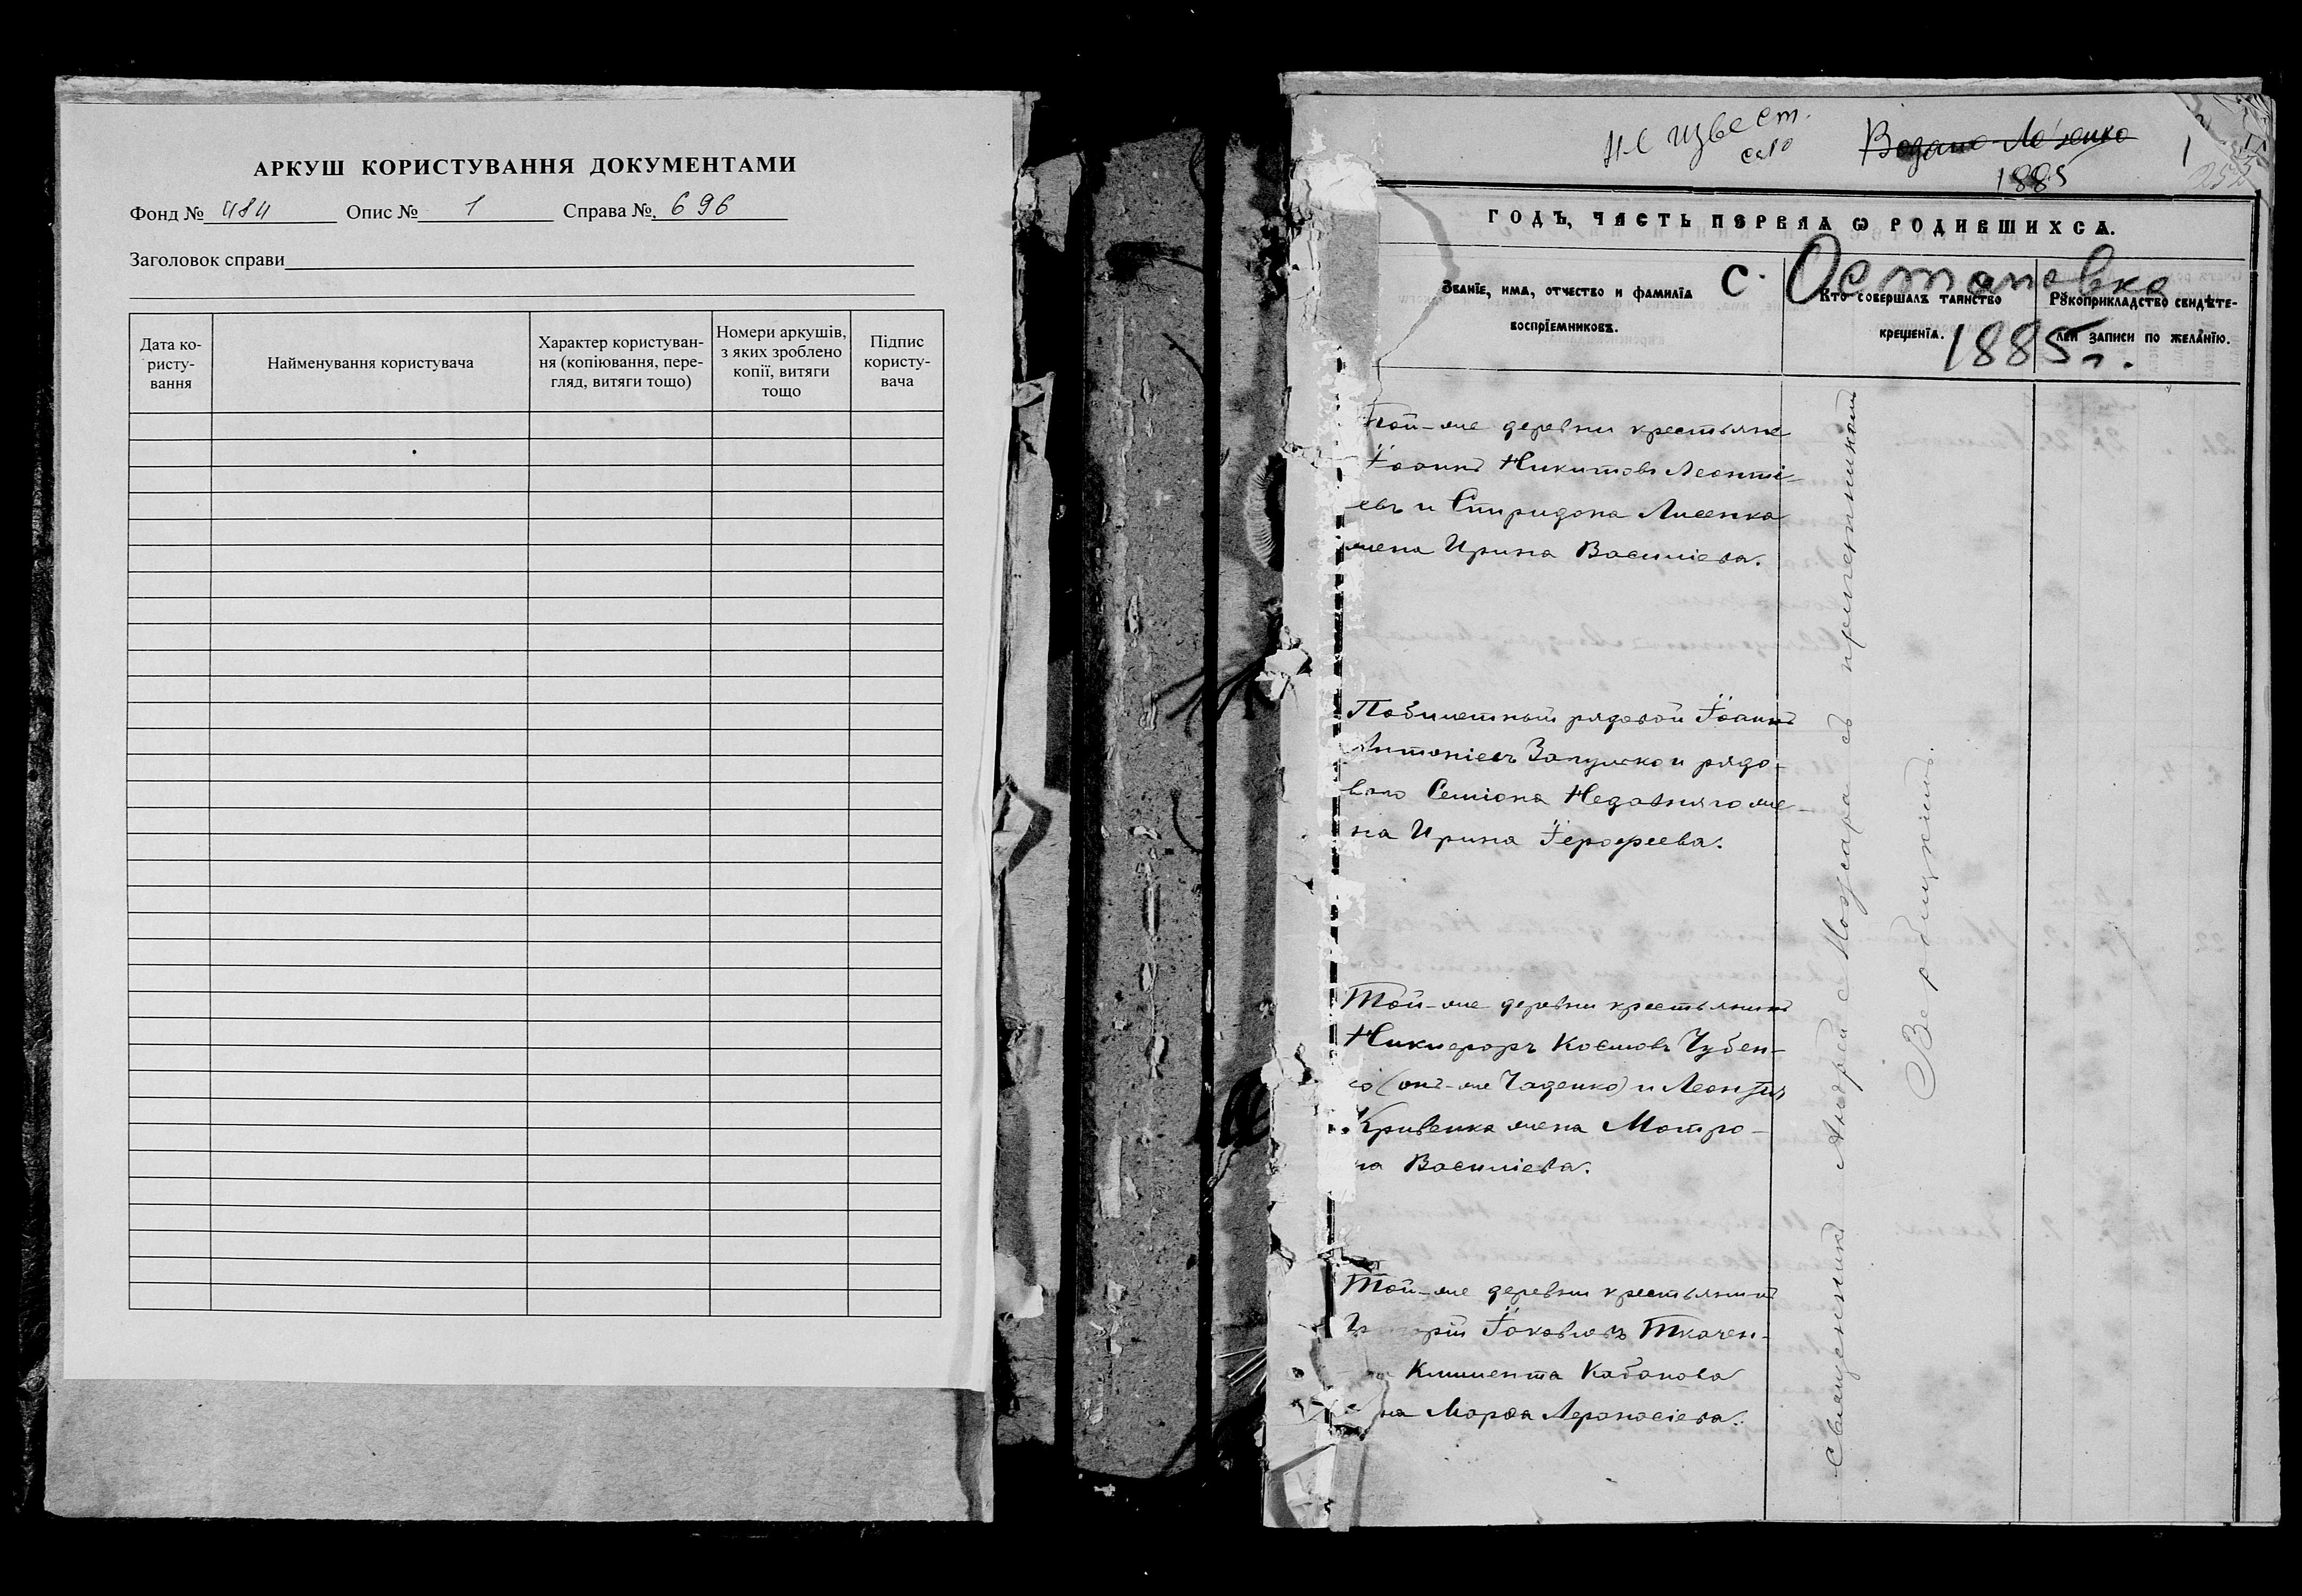 АРКУШ КОРИСТУВАННЯ ДОКУМЕНТАМИ
Фонд № 484 Опис № 1 Справа № 696
Заголовок справи
Дата ко-
ристу-
вання
Найменування користувача
Характер користуван-
ня (копіювання, пере-
гляд, витяги тощо)
Номери аркушів,
з яких зроблено
копії, витяги
тощо
Підпис
користу-
вача
неизвест.
село
1885
1
ГОДЪ, ЧАСТЬ ПЕРВАЯ Ѡ РОДИВШИХСѦ.
С. Остановка
1885 г.
Званїе, има, отчество и фамилїа
воспрїемниковъ.
Кто совершалъ таинство
крещенїа.
Рꙋкоприкладство свидѣте-
лей записи по желанїю.
Той-же деревни крестьяне
Іоаннъ Никитовъ Леонті-
евъ и Спиридона Лисенка
жена Ирина Василіева.
рядовой Іоаннъ
Антоніевъ и рядо-
ваго Семіона Недавняго же-
на Ирина Іерофеева.
Той-же деревни крестьянинъ
Никифоръ Космовъ Чубен-
ко (онъ-же Чаденко) и Леонтія
Кривенка жена Матро-
на Василіева.
Той-же деревни крестьянинъ
Іаковлевъ Ткачен-
Климента Кабанова
на Марѳа Аѳанасіева.
Священникъ Андрей Можара съ